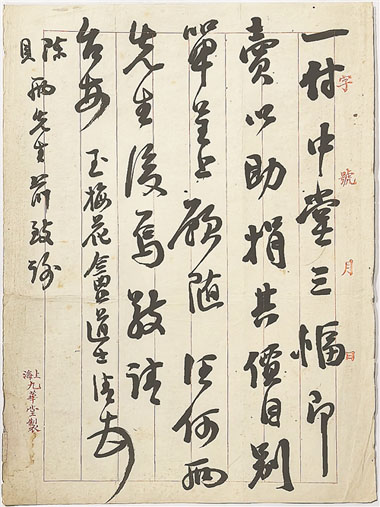 字號 月 日
一付中堂三幅即
賣以助捐其價目別
單呈上願隨 何兩
先生後焉敬請
台安 玉梅花盦道士清
陳貝兩先生前致謝
上海九華堂製